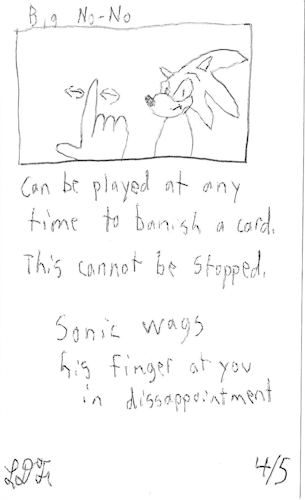 Big No-No
Can be played at any
time to banish a card.
This cannot be stopped.
Sonic wags
his finger at you
in dissappointment
4/5